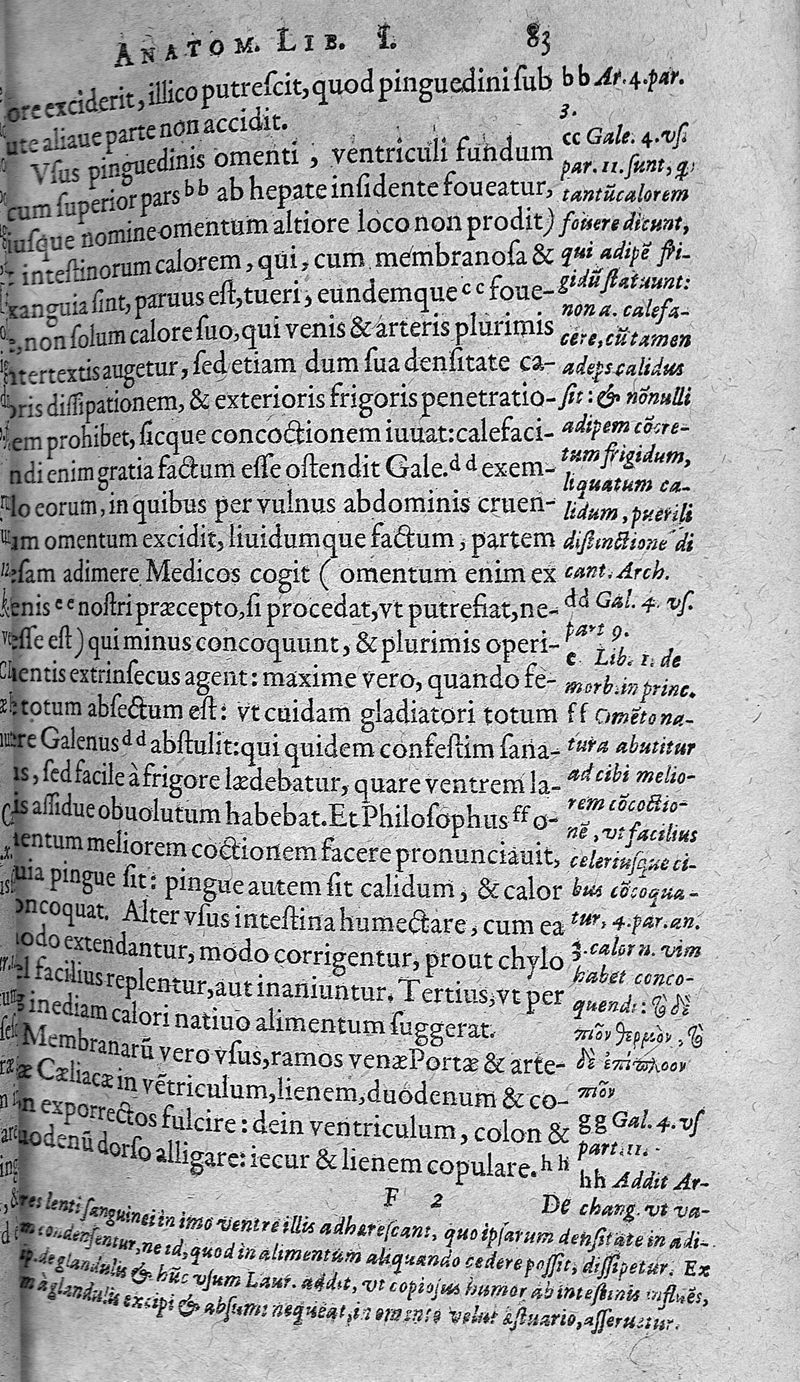 ANATOM. LIB. I. 83
ore exciderit, illico putreſcit, quod pinguedini ſub
ute aliaue parte non accidit.
Vſus pinguedinis omenti, ventriculi fundum
cum ſuperior pars bb ab hepate inſidente foueatur,
iuſque nomine omentum altiore loco non prodit)
inteſtinorum calorem, qui, cum membranoſa &
xanguia ſint, paruus eſt, tueri, eundemque cc foue-
non ſolum calore ſuo, qui venis & arteris plurimis
ntertextis augetur, ſed etiam dum ſua denſitate ca-
oris diſſipationem, & exterioris frigoris penetratio-
em prohibet, ſicque concoctionem iuuat: calefaci-
ndi enim gratia factum eſſe oſtendit Gale. dd exem-
lo eorum, in quibus per vulnus abdominis cruen-
am omentum excidit, liuidumque factum, partem
ſam adimere Medicos cogit (omentum enim ex
enis ee noſtri præcepto, ſi procedat, vt putrefiat, ne-
eſſe eſt) qui minus concoquunt, & plurimis operi-
entis extrinſecus agent: maxime vero, quando fe-
totum abſectum eſt: vt cuidam gladiatori totum
re Galenus dd abſtulit: qui quidem confeſtim ſana-
is, ſed facile à frigore lædebatur, quare ventrem la-
is aſſidue obuolutum habebat. Et Philoſophus ff o-
entum meliorem coctionem facere pronunciauit,
uia pingue ſit: pingue autem ſit calidum, & calor
oncoquat. Alter vſus inteſtina humectare, cum ea
odo extendantur, modo corrigentur, prout chylo
l facilius replentur, aut inaniuntur. Tertius, vt per
inediam calori natiuo alimentum ſuggerat.
Membranarũ vero vſus, ramos venæ Portæ & arte-
æ Cæliacæ in vẽtriculum, lienem, duodenum & co-
n exporrectos fulcire: dein ventriculum, colon &
uodenũ dorſo alligare: iecur & lienem copulare. hh
F 2 De
bb Ar. 4. par.
3.
cc Gale. 4. vſ.
par. 11. ſunt, q;
tantũ calorem
fouere dicunt,
qui adipẽ fri-
gidũ ſtatuunt:
non a. calefa-
cere, cũ tamen
adeps calidus
ſit: & nõnulli
adipem cõcre-
tum frigidum,
liquatum ca-
lidum, puerili
diſtinctione di
cant. Arch.
dd Gal. 4. vſ.
part 9.
e Lib. 1. de
morb. in princ.
ff Omẽto na-
tura abutitur
ad cibi melio-
rem cõcoctio-
nẽ, vt facilius
celeriuſque ci-
bus cõcoqua-
tur, 4. par. an.
3. calor n. vim
habet conco-
quendi: τὸ δὲ
πῖον θερμὸν, τὸ
δὲ ἐπίπλοον
πῖον
gg Gal. 4. vſ
part. 11.
hh Addit Ar-
chang. vt va-
res lenti ſanguinei in imo ventre illis adhæreſcant, quo ipſarum denſitate in adi-
m condenſentur, ne id, quod in alimentum aliquando cedere poſſit, diſſipetur. Ex
ip. de glandulis & hũc vſum Laur. addit, vt copioſus humor ab inteſtinis influẽs,
à glandulis excipi & abſumi nequeat, in omento velut æſtuario, aſſeruetur.